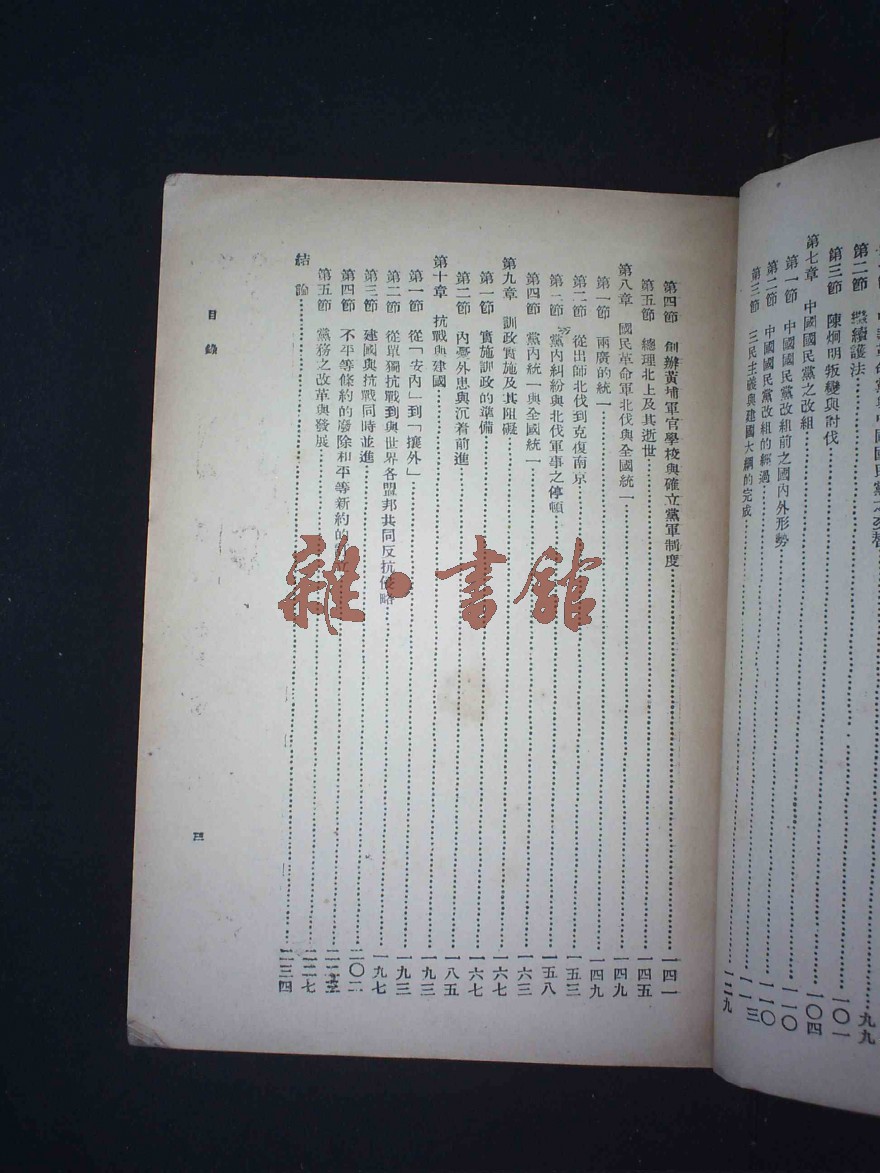 第二節 繼續護法 九九
第三節 陳炯明叛變與討伐 一〇一
第七章 中國國民黨之改組 一〇四
第一節 中國國民黨改組前之國內外形勢 一一〇
第二節 中國國民黨改組的經過 一一〇
第三節 三民主義與建國大綱的完成 一二九
第四節 創辦黃埔軍官學校與確立黨軍制度 一四一
第五節 總理北上及其逝世 一四五
第八章 國民革命軍北伐與全國統一 一四九
第一節 兩廣的統一 一四九
第二節 從出師北伐到克復南京 一五三
第三節 黨內糾紛與北伐軍事之停頓 一五八
第四節 黨內統一與全國統一 一六三
第九章 訓政實施及其阻礙 一六七
第一節 實施訓政的準備 一六七
第二節 內憂外患與沉着前進 一八五
第十章 抗戰與建國 一九三
第一節 從「安內」到「攘外」 一九三
第二節 從單獨抗戰到與世界各盟邦共同反抗侵略 一九七
第三節 建國與抗戰同時並進 二〇二
第四節 不平等條約的廢除和平等新約的
第五節 黨務之改革與發展 二二七
結論 二三四
目錄
三
雜·書館